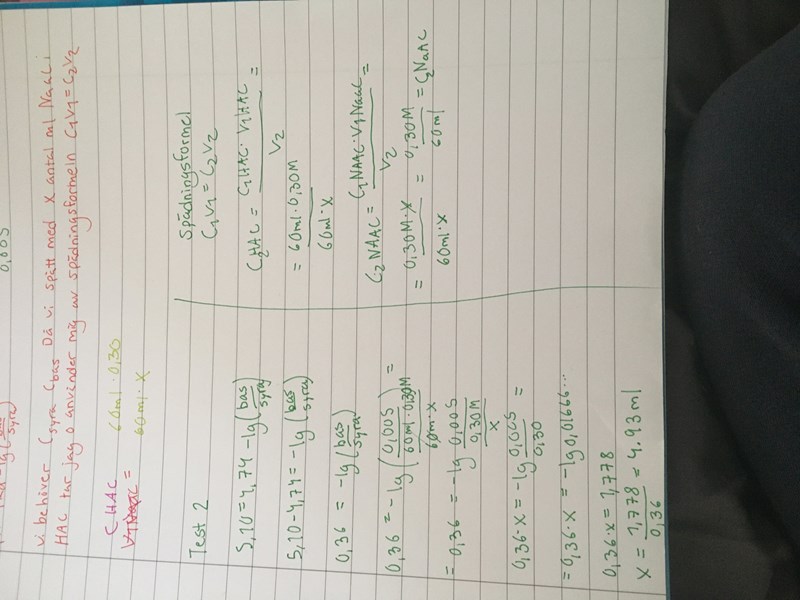 0,005
syra
Vi behöver Csyra Cbas Då vi spätt med X antal ml NaAc i
HAC tar jag o använder mig av spädningsformeln C1V1=C2V2
CHAC
60ml·0,30
=
60ml·X
Test 2
5,10=4,74-lg(bas/syra)
5,10-4,74=-lg(bas/syra)
0,36 = -lg(bas/syra)
0,36 = -lg(0,005/(60ml·0,30M/60ml·X)) =
= 0,36 = -lg 0,005/(0,30M/X)
0,36·X = -lg 0,005/0,30 =
=0,36·X = -lg 0,01666...
0,36·X = 1,778
X = 1,778/0,36 = 4,93ml
Spädningsformel
C1V1=C2V2
C2HAC = C1HAC·V1HAC/V2 =
= 60ml·0,30M/60ml·X
C2NAAC = C1NAAC·V1NaAC/V2 =
= 0,30M·X/60ml·X = 0,30M/60ml = C2NaAC